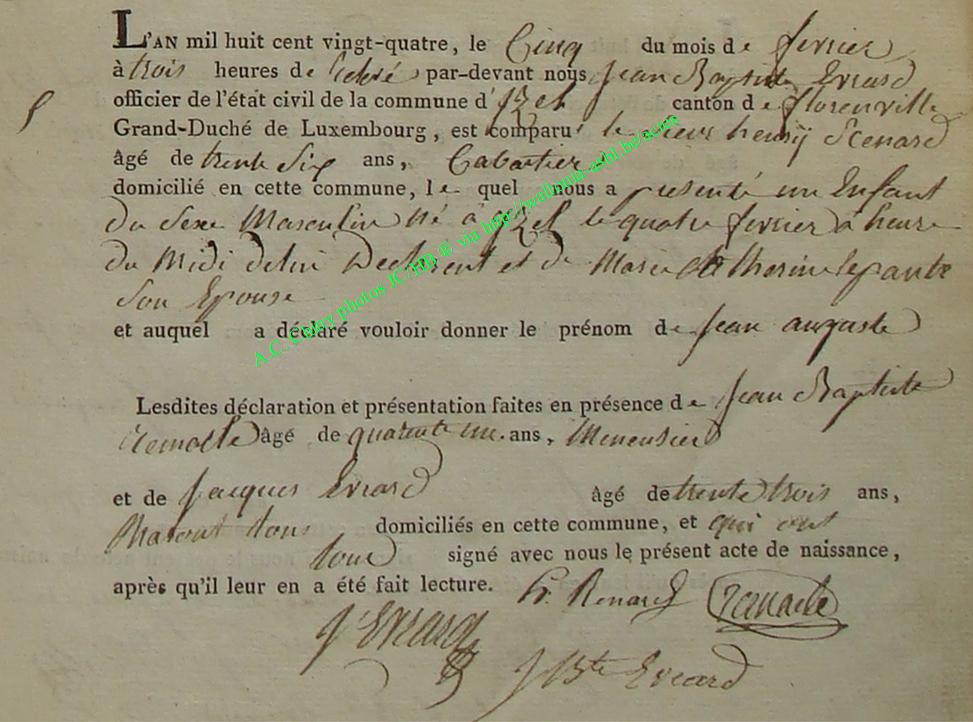 5
L'AN mil huit cent vingt-quatre, le Cinq du mois de fevrier
à trois heures de par-devant nous Jean Baptiste Evrard
officier de l'état civil de la commune d'izel canton de florenville
Grand-Duché de Luxembourg, est comparu le sieur henrÿ Renard
âgé de trente Six ans, Cabartier
domicilié en cette commune, le quel nous a presenté un Enfant
du Sexe Masculin né à izel le quatre fevrier à heure
du Midi de lui Declarent et de Marie Catherine lepante
Son Epouse
et auquel a déclaré vouloir donner le prénom de Jean auguste
Lesdites déclaration et présentation faites en présence de Jean Baptiste
remacle âgé de quarente un ans, Meneusier
et de Jacques Evrard âgé de trente trois ans,
tous domiciliés en cette commune, et qui ont
tous signé avec nous le présent acte de naissance,
après qu'il leur en a été fait lecture. h. Renard remacle
J Evrard
J Bte Evrard
A.C. Chiny photos JC Hip ® via http://wallonia-asbl.be/actes